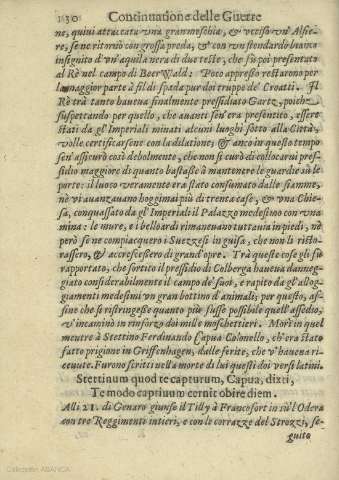 130 Continuatione delle Guerre
ne, quiui attaccata vna granmoschia, & vcciso vn' Alfie-
re, se ne ritornò con grossa preda, & con vn stendardo bianco
insignito d'vn'aquila nera di due teste, che fù poi presentato
al Rè nel campo di BeerWald: Poco appresso restarono per
la maggior parte à fil di spada pur doi truppe de' Croatti. Il
Rè trà tanto haueua finalmente pressidiato Gartz, poiche
suspettando per quello, che auanti sen'era presentico, essere
stati da gl'Imperiali minati alcuni luoghi sotto alla Città,
volle certificarsene con la dilatione; & anco in questo tempo
sen'assicurò così debolmente, che non si curò di collocarui pres-
sidio maggiore di quanto bastasse à mantenere le guardie sù le
porte: il luoco veramente era stato consumato dalle fiamme,
nè vi auanzauano hoggimai più di trenta case, & vna Chie-
sa, conquassato da gl'Imperiali il Palazzo medesimo con vna
mina: le mura, e i belloardi rimaneuano tuttauia in piedi, nè
però se ne compiacquero i Suezzesi in guisa, che non li risto-
rassero, & accrescessero di grand'opre. Trà queste cose gli fù
rapportato, che sortito il pressidio di Colberga haueua danneg-
giato considerabilmente il campo de' suoi, e rapito da gl'allog-
giamenti medesimi vn gran bottino d'animali; per questo, af-
fine che si ristringesse quanto più fusse possibile quell'assedio,
v'incaminò in rinforzo doi mille moschettieri. Morì in quel
mentre à Stettino Ferdinando Capua Colonello, ch'era stato
fatto prigione in Griffenhagen, dalle ferite, che v'haueua ri-
ceuute. Furono scritti nella morte di lui questi doi versi latini.
Stettinum quod te capturum, Capua, dixti,
Te modo captiuum cernit obire diem.
Alli 21. di Genaro giunse il Tilly à Francofort in sù l'Odera
con tre Reggimenti intieri, e con le corrazze del Strozzi, se-
guito
Colección ABANCA